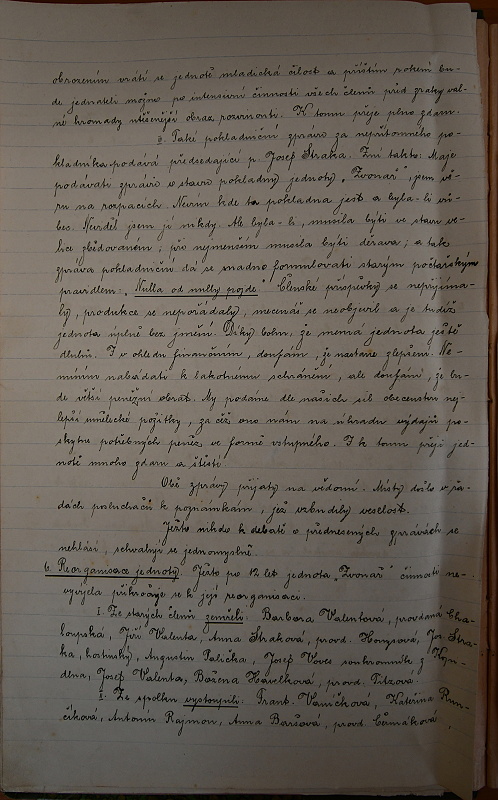 obrozením vrátí se jednotě mladická čilost a příštím rokem bu-
de jednateli možno po intensivní činnosti všech členů před zraky val-
né hromady utěšenější obraz rozvinouti. K tomu přeje plno zdaru.
2. Také pokladniční zprávu za nepřítomného po-
kladníka podává předsedající p. Josef Straka. Zní takto: Maje
podávati zprávu o stavu pokladny jednoty „Zvonař", jsem vě-
ru na rozpacích. Nevím kde ta pokladna jest a byla-li vů-
bec. Neviděl jsem jí nikdy. Ale byla-li, musila býti ve stavu ve-
lice zbědovaném; při nejmenším musila býti děravá; a tak
zpráva pokladniční dá se snadno formulovati starým počtářským
pravidlem: „Nulla od nully pojde." Členské příspěvky se nepřijíma-
ly, produkce se nepořádaly, mecenáš se neobjevil a je tudíž
jednota úplně bez jmění. Díky bohu, že nemá jednota ještě
dluhů. I v ohledu finančním, doufám, že nastane zlepšení. Ne-
míním nabádati k lakotnému schránění, ale doufám, že bu-
de větší peněžní obrat. My podáme dle našich sil obecenstvu nej-
lepší umělecké požitky, za čež ono nám na úhradu výdajů po-
skytne potřebných peněz ve formě vstupného. I k tomu přeji jed-
notě mnoho zdaru a štěstí.
Obě zprávy přijaty na vědomí. Místy došlo v řa-
dách posluchačů k poznámkám, jež vzbudily veselost.
Ježto nikdo k debatě o přednesených zprávách se
nehlásí, schvalují se jednomyslně.
6. Reorganisace jednoty. Ježto po 12 let jednota „Zvonař" činnosti ne-
vyvíjela přikročuje se k její reorganisaci.
I. Ze starých členů zemřeli: Barbora Valentová, provdaná Cha-
loupská, Jiří Valenta, Anna Straková, provd. Honzsová, Jos. Stra-
ka, hostinský, Augustin Palička, Josef Voves soukromník z
Josef Valenta, Božena Havelková, provd.
II. Ze spolku vystoupili: Frant. Vaníčková, Kateřina
Antonín Rajmon, Anna Baršová, provd. Čermáková,